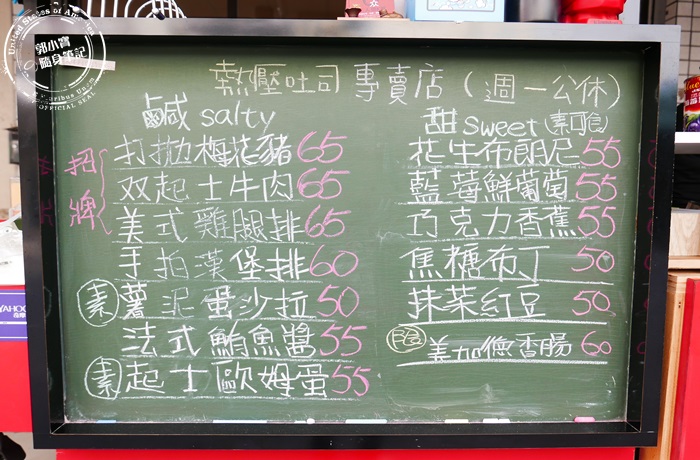 郭小寶
隨身筆記
United States of
Pluribus Unum
OFFICIAL SEAL
熱壓吐司 專賣店 (週一公休)
鹹 salty
招牌
打拋梅花豬 65
双起士牛肉 65
美式雞腿排 65
手拍漢堡排 60
素 薯泥蛋沙拉 50
法式鮪魚醬 55
素 起士歐姆蛋 55
甜 sweet (素可食)
花生布朗尼 55
藍莓鮮葡萄 55
巧克力香蕉 55
焦糖布丁 50
抹茶紅豆 50
美加德香腸 60
YAHOO